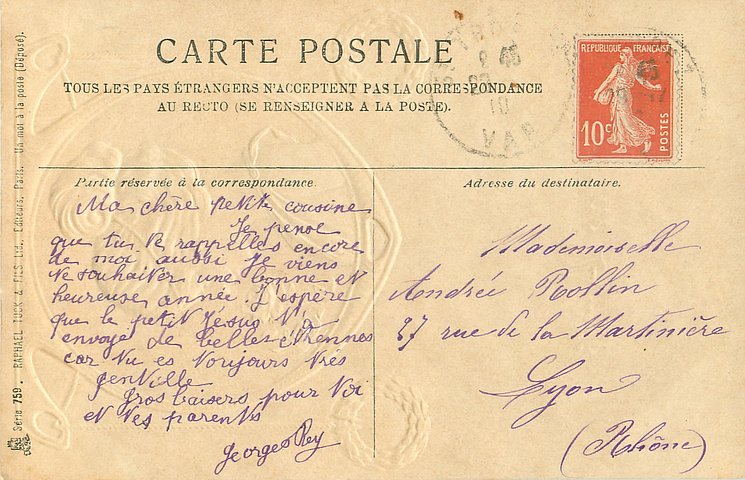 CARTE POSTALE
TOUS LES PAYS ÉTRANGERS N'ACCEPTENT PAS LA CORRESPONDANCE
AU RECTO (SE RENSEIGNER A LA POSTE).
REPUBLIQUE FRANÇAISE
10c
POSTES
9 45
10
VAR
Partie réservée à la correspondance.
Ma chère petite cousine
Je pense
que tu te rappelles encore
de moi aussi je viens
te souhaiter une bonne et
heureuse année. J'espère
que le petit Jésus t'a
envoyé de belles étrennes
car tu es toujours très
gentille
Gros baisers pour toi
et tes parents
Georges Rey
Adresse du destinataire.
Mademoiselle
Andrée Rollin
37 rue de la Martinière
Lyon
(Rhône)
Série 759. RAPHAEL TUCK & FILS Ltd., Editeurs, Paris. Un mot à la poste (Déposé).